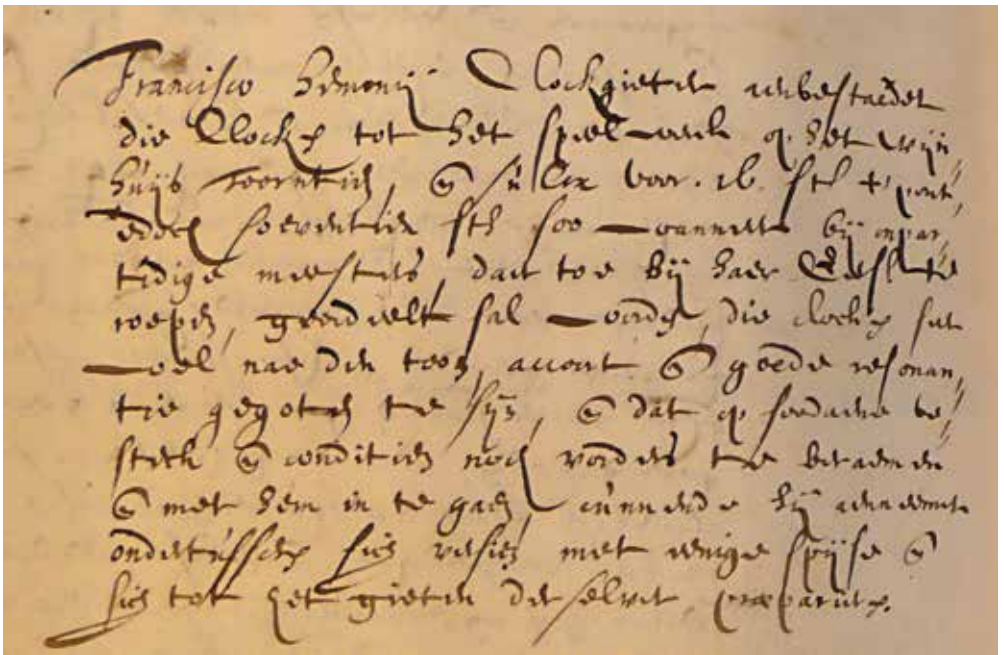 Francisco Hemonij Clockgieter aenbesteedet
die Clocken tot het speelwerck op het wijn,
huijs toorntien, en sulcx voor . 16. st. t' pont,
edoch seeventien st. soo wanneer bij onpar,
tidige meesters, daer toe bij haer te
roepen, geordeelt sal worden, die clocken seer
wel nae den toon, accort en goede resonan,
tie gegoten te sijn, en dat op soodaene be,
steck en conditien noch vorders te beraemen
en met hem in te gaen, cunnende hij aenneemer
ondertusschen sich versien met eenige spijse en
sich tot het gieten derselver praepareren.